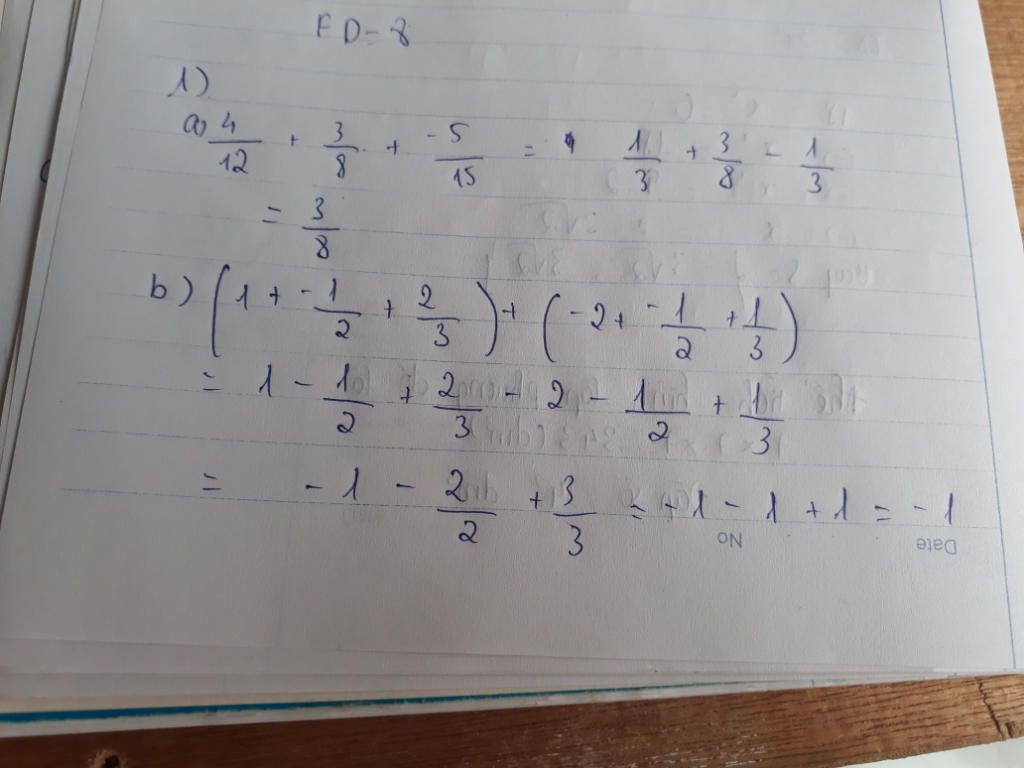 FD = 8
1)
a) 4/12 + 3/8 + -5/15 = 1/3 + 3/8 - 1/3
= 3/8
b) (1 + -1/2 + 2/3) + (-2 + -1/2 + 1/3)
= 1 - 1/2 + 2/3 - 2 - 1/2 + 1/3
= -1 - 2/2 + 3/3 = -1 - 1 + 1 = -1
No Date